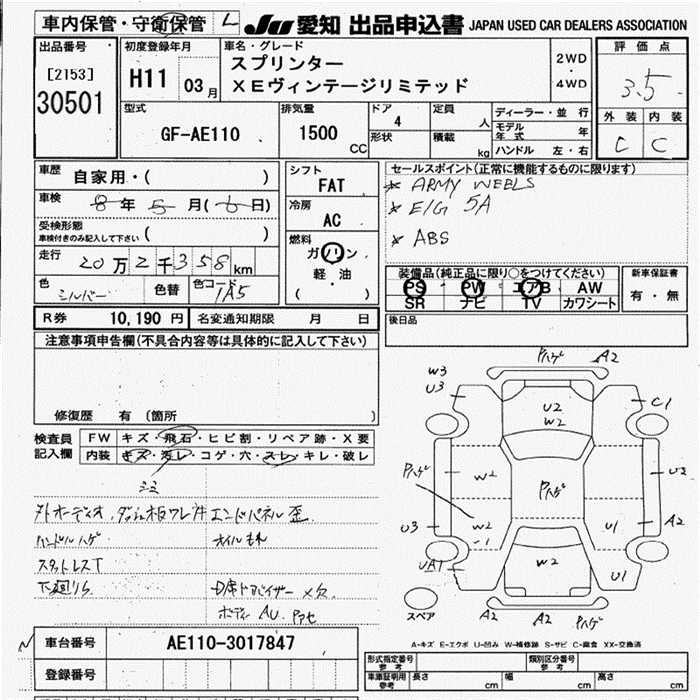 車内保管・守衛保管 L JU 愛知 出品申込書 JAPAN USED CAR DEALERS ASSOCIATION
出品番号 初度登録年月 車名・グレード 評価点
[2153] H11 03月 スプリンター 2WD・4WD 3.5
30501 XEヴィンテージリミテッド 外装 内装
型式 排気量 ドア 定員 ディーラー・並行 C C
GF-AE110 1500CC 4 人 モデル年式 年
形状 積載 kg ハンドル 左・右
車歴 自家用・( ) シフト FAT セールスポイント(正常に機能するものに限ります)
* ARMY WEELS
車検 8年5月(6日) 冷房 AC * E/G 5A
受検形態 車検付きのみ記入して下さい ( ) * ABS
走行 20万2千358km 燃料 ガソリン 軽・油 ( )
装備品(純正品に限り○をつけてください) 新車保証書
PS PW エアB AW 有・無
色 シルバー 色替 色コード 1A5
SR ナビ TV カワシート
R券 10,190円 名変通知期限 月 日 後日品
注意事項申告欄(不具合内容等は具体的に記入して下さい)
修復歴 有 (箇所 )
検査員記入欄 FW キズ・飛石・ヒビ割・リペア跡・X要
内装 キズ・汚レ・コゲ・穴・スレ・キレ・破レ
シミ
外オーディオ
オイルモレ
ハンドルハゲ
スタットレスT
下廻りS
Pハゲ A2
W3
U3 C1
U2
W2
Pハゲ W2 Pハゲ U2
U3 W2 U1 A2
-1
UA1 W2 U1
スペア A2 A2 Pハゲ
A-キズ E-エクボ U-凹み W-補修跡 S-サビ C-腐食 XX-交換済
車台番号 AE110-3017847
登録番号
形式指定番号 参考 類別区分番号 参考
車庫証明用 参考 長さ cm 幅 cm 高さ cm